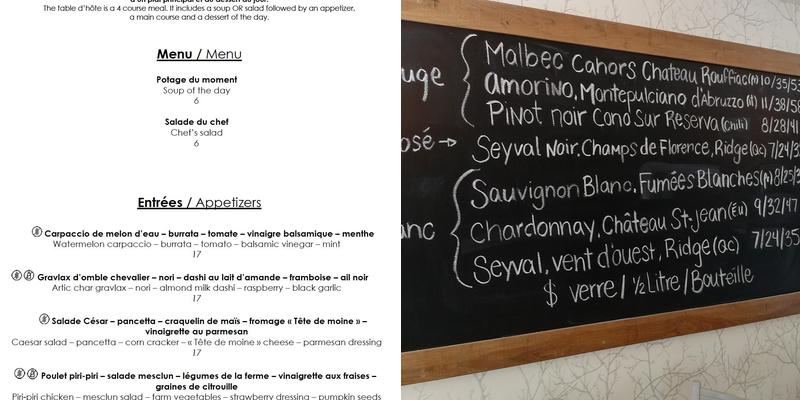 The table d'hôte is a 4 course meal. It includes a soup OR salad followed by an appetizer,
a main course and a dessert of the day.
Menu / Menu
Potage du moment
Soup of the day
6
Salade du chef
Chef's salad
6
Entrées / Appetizers
Carpaccio de melon d'eau – burrata – tomate – vinaigre balsamique – menthe
Watermelon carpaccio – burrata – tomato – balsamic vinegar – mint
17
Gravlax d'omble chevalier – nori – dashi au lait d'amande – framboise – ail noir
Artic char gravlax – nori – almond milk dashi – raspberry – black garlic
17
Salade César – pancetta – craquelin de maïs – fromage « Tête de moine » –
vinaigrette au parmesan
Caesar salad – pancetta – corn cracker – « Tête de moine » cheese – parmesan dressing
17
Poulet piri-piri – salade mesclun – légumes de la ferme – vinaigrette aux fraises –
graines de citrouille
Piri-piri chicken – mesclun salad – farm vegetables – strawberry dressing – pumpkin seeds
Malbec Cahors Chateau Rouffiac 10/35/53
uge
Amorino, Montepulciano d'Abruzzo 11/38/58
Pinot noir Cono Sur Reserva (Chili) 8/28/41
osé → Seyval Noir, Champs de Florence, Ridge (QC) 7/24/3
Sauvignon Blanc, Fumées Blanches 8/25/3
anc
Chardonnay, Château St-Jean (ÉU) 9/32/47
Seyval, vent d'ouest, Ridge (QC) 7/24/35
$ verre / ½ Litre / Bouteille